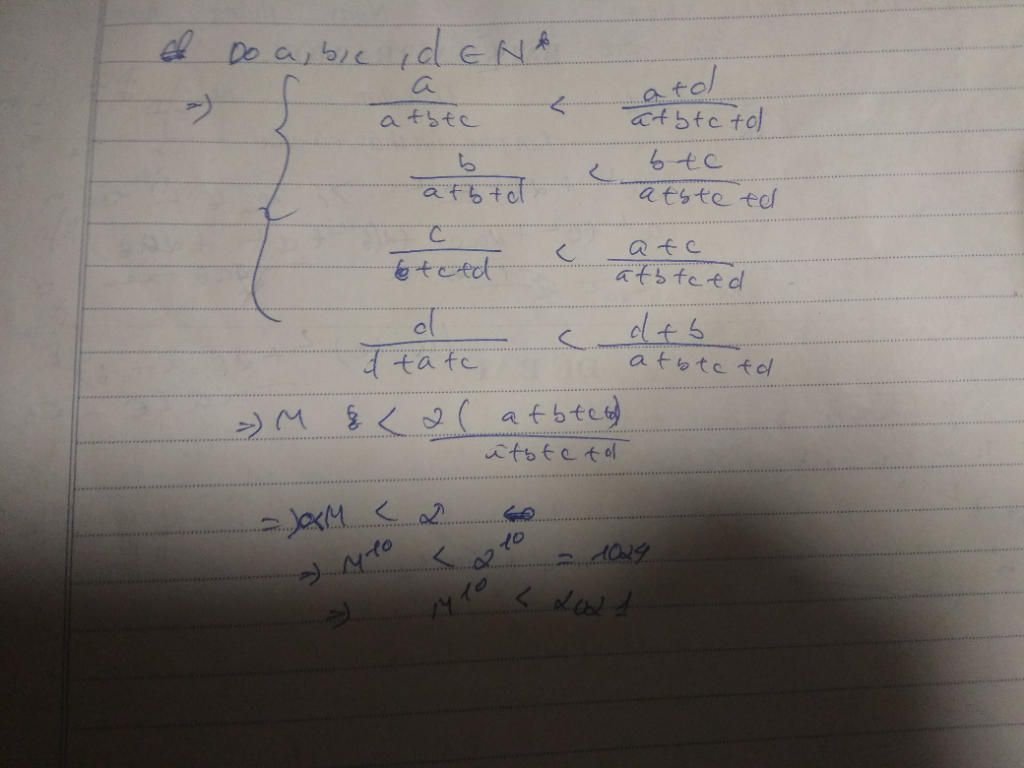 Do a, b, c, d ∈ N*
=> { a/(a+b+c) < (a+d)/(a+b+c+d)
b/(a+b+d) < (b+c)/(a+b+c+d)
c/(b+c+d) < (a+c)/(a+b+c+d)
d/(d+a+c) < (d+b)/(a+b+c+d)
=> M < 2(a+b+c+d)/(a+b+c+d)
=> M < 2
=> M^10 < 2^10 = 1024
=> M^10 < 2021